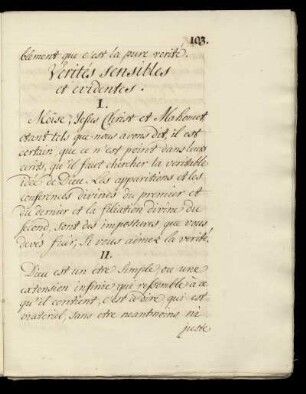 103.
blement que c'est la pure verité.
Verités sensibles
et evidentes.
I.
Moise, Jesus Christ et Mahomet
etant tels que nous avons dit, il est
certain que ce n'est point dans leurs
ecrits, qu'il faut chercher la veritable
idée de Dieu. Les apparitions et les
conferences divines du premier et
du dernier et la filiation divine du
second, sont des impostures que vous
devés fuir, si vous aimez la verité.
II.
Dieu est un etre simple, ou une
extension infinie qui ressemble à ce
qu'il contient, c'est à dire qui est
materiel, sans etre neantmoins ni
juste